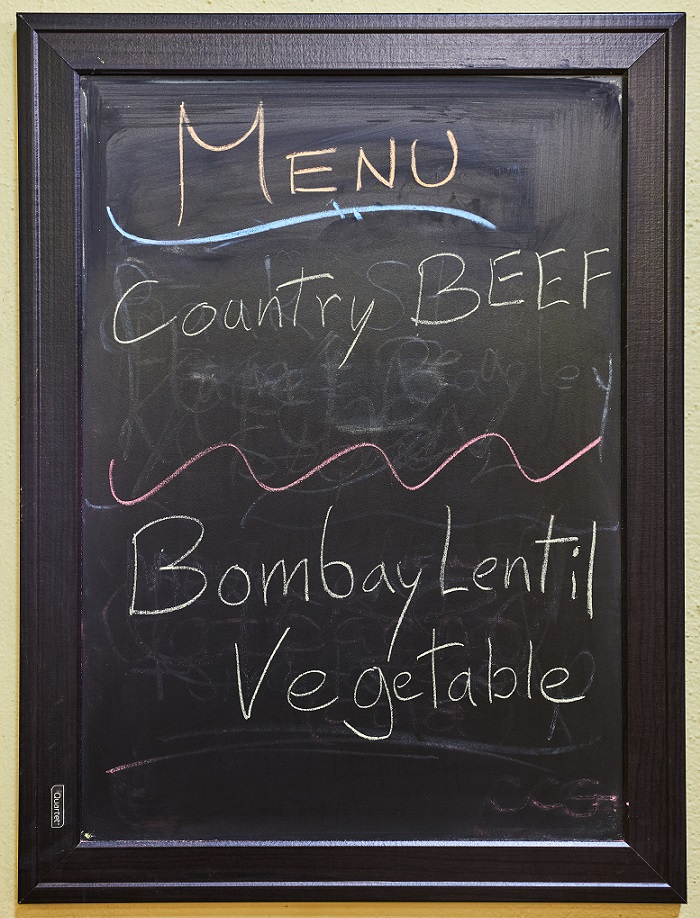 MENU
Country BEEF
Bombay Lentil
Vegetable
Quartet